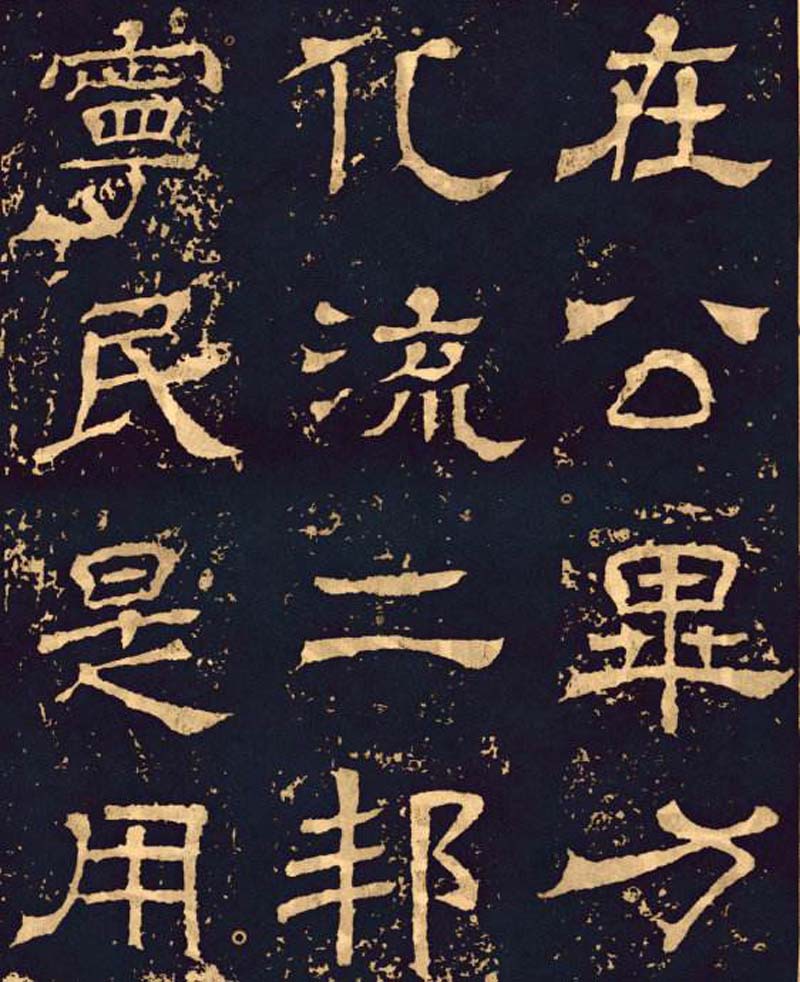 在公畢力
化流二邦
寧民是用